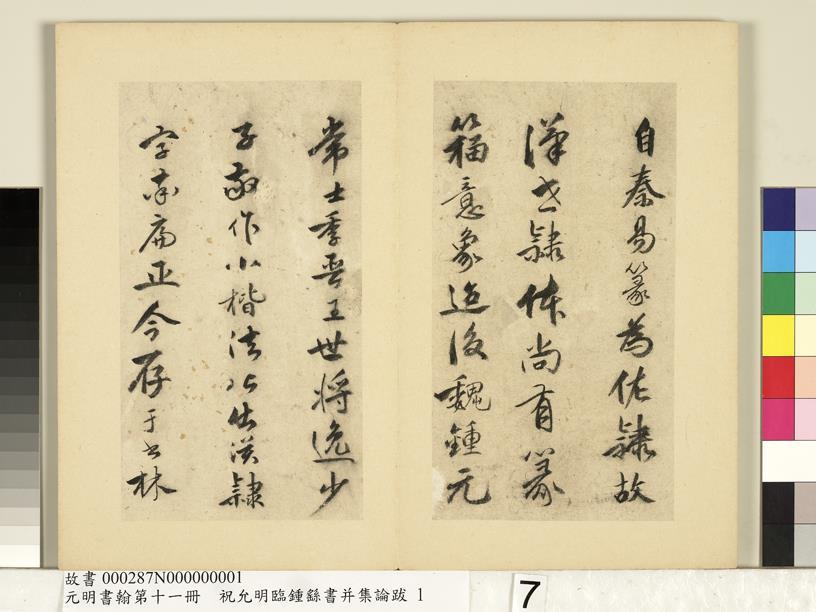 自秦易篆為佐隸故
漢世隸体尚有篆
籀意象迨後魏鍾元
常士季晋王世将逸少
子敬作小楷法皆出漢隸
字率扁正今存于書林
故書 000287N000000001
元明書翰第十一冊 祝允明臨鍾繇書并集論跋 1
7